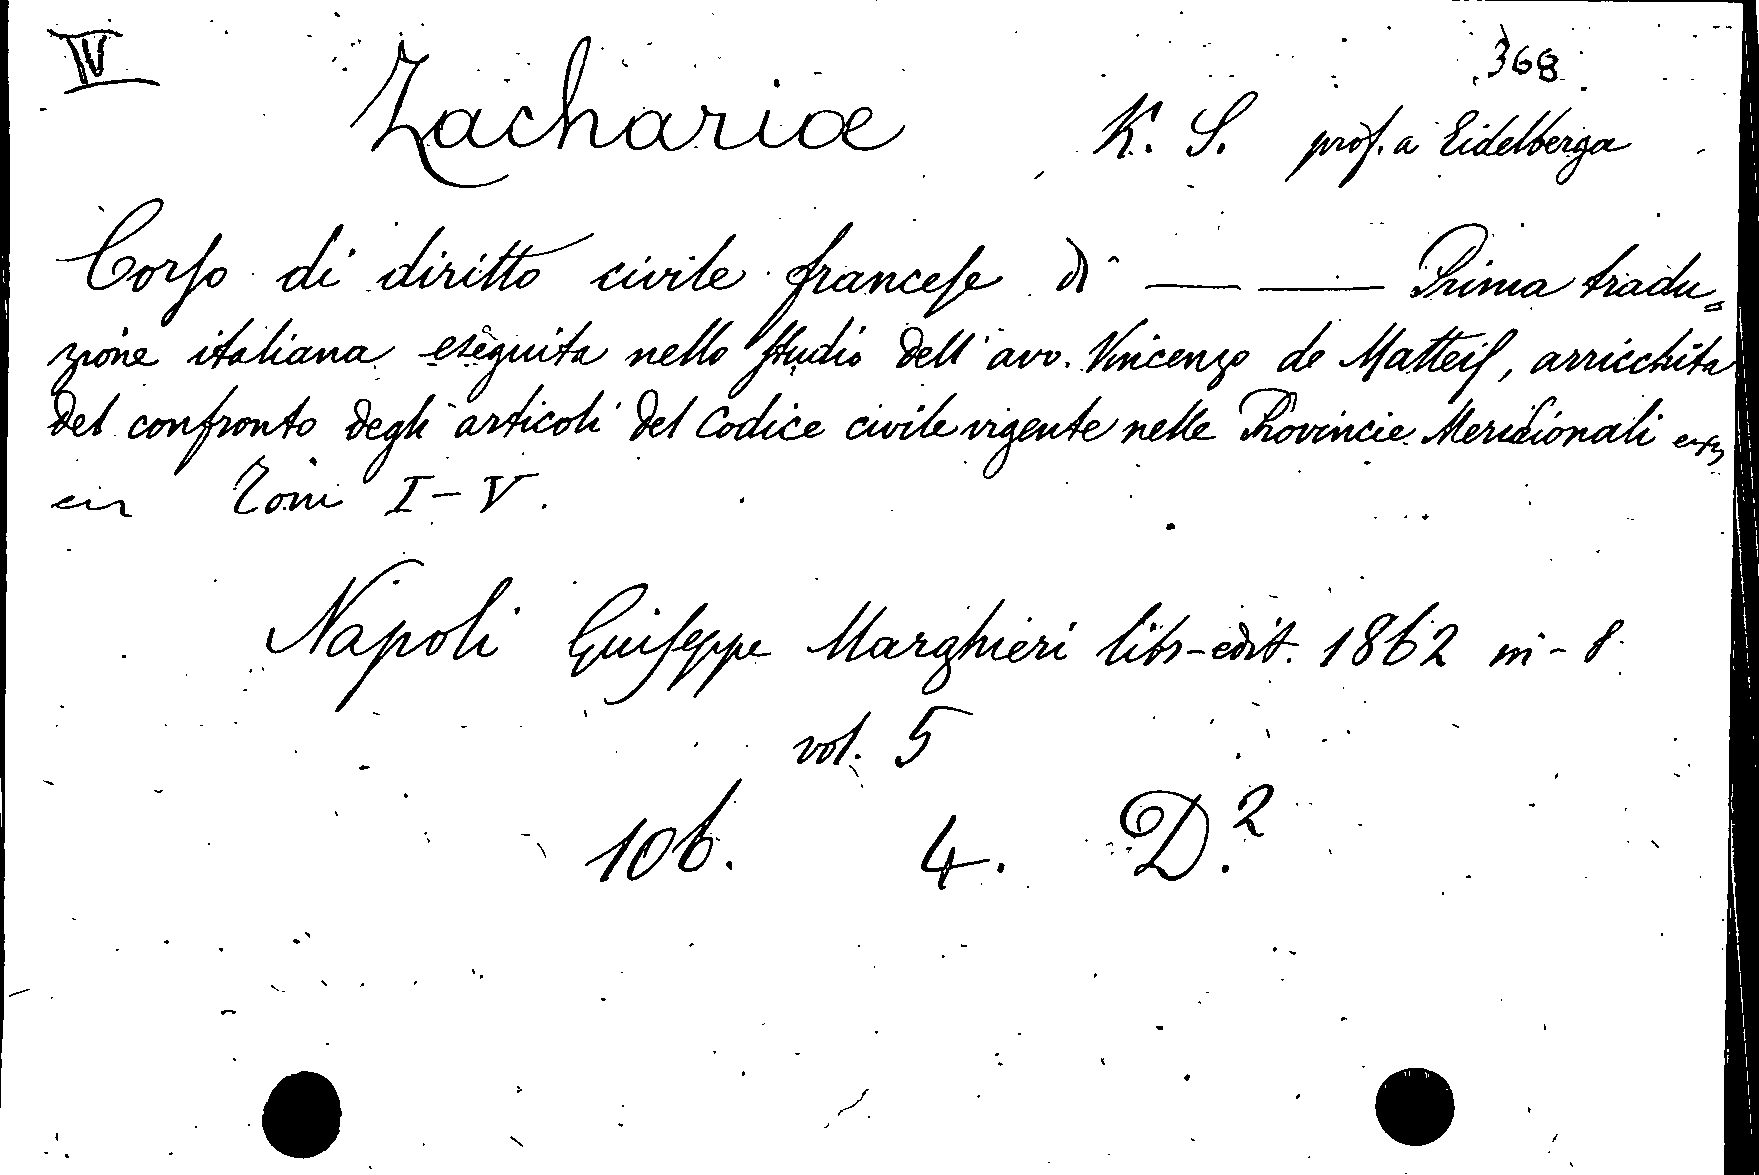 IV
368
Zachariæ K. S. prof. a Eidelberga
Corso di diritto civile francese di — — Prima tradu-
zione italiana eseguita nello studio dell'avv. Vincenzo de Matteis, arricchita
del confronto degli articoli del Codice civile vigente nelle Provincie Meridionali
Tomi I-V.
Napoli Giuseppe Marghieri libr-edit. 1862 in-8
vol. 5
106. 4. D.²